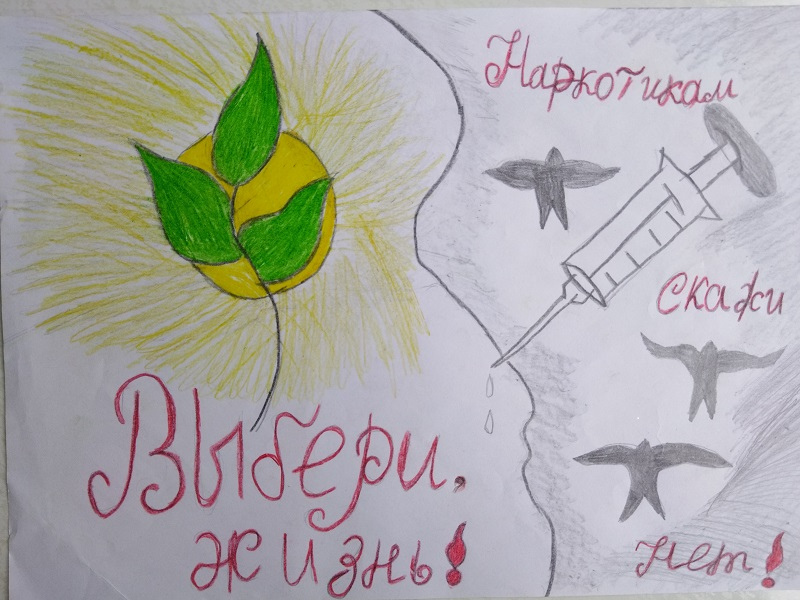 Наркотикам
Скажи
нет!
Выбери,
жизнь!